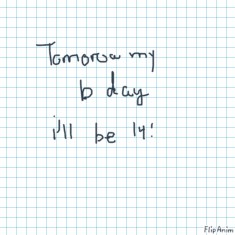 Tomorow my
b day
i'll be 14!
FlipAnim